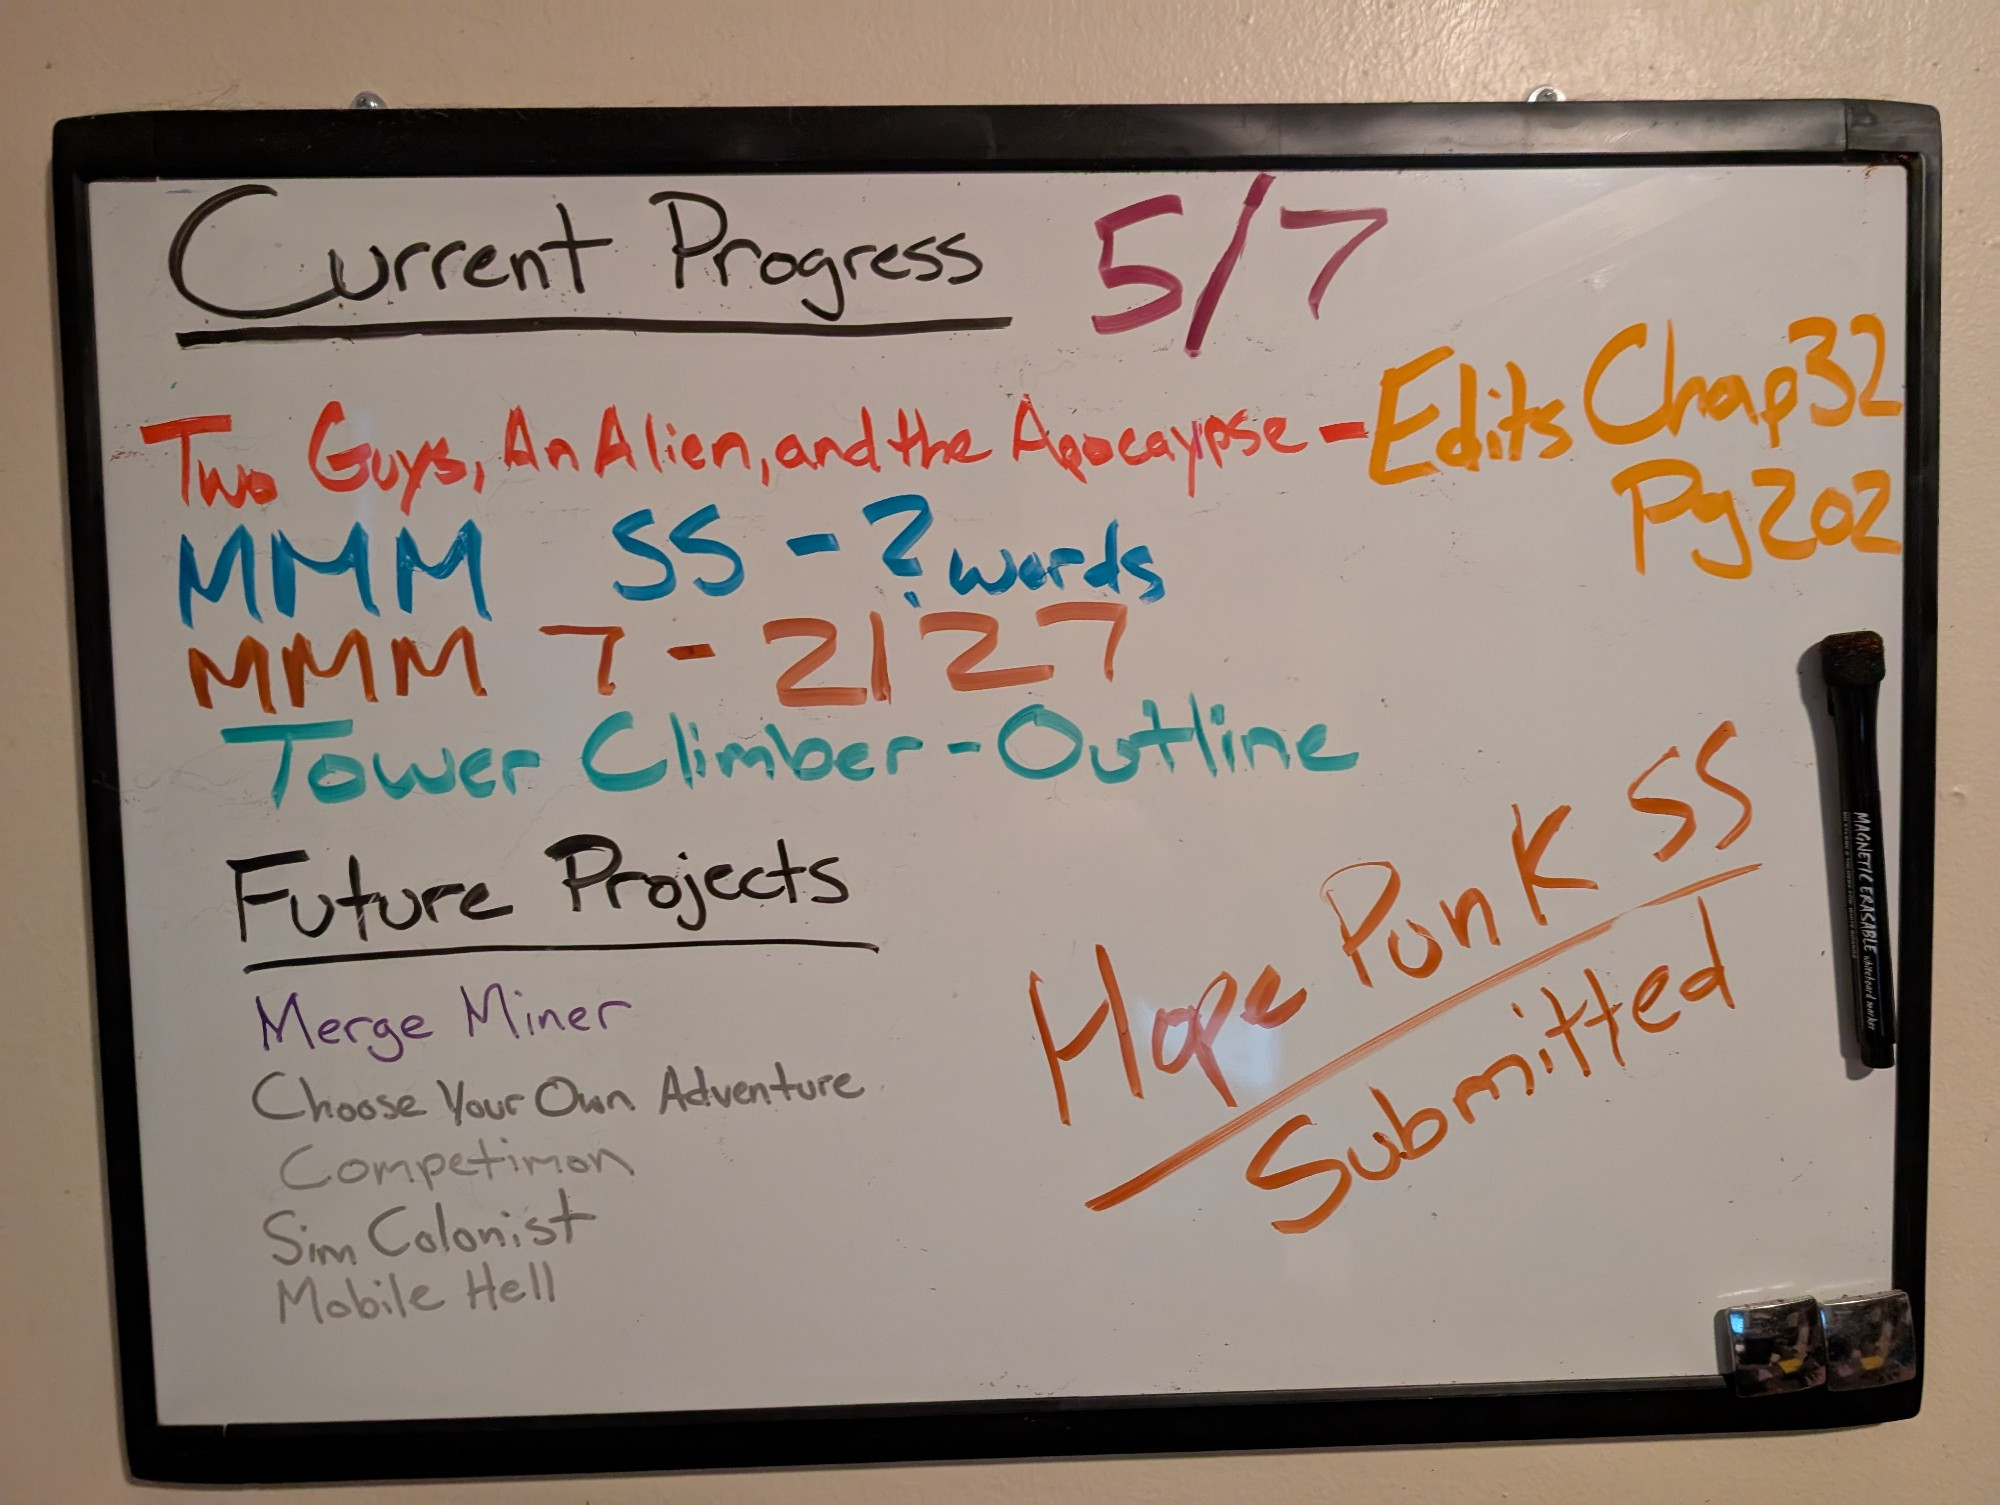 Current Progress 5/7
Two Guys, An Alien, and the Apocaylpse - Edits Chap 32
Pg 202
MMM SS - ? words
MMM 7 - 2127
Tower Climber - Outline
Future Projects
Merge Miner
Choose Your Own Adventure
Competimon
Sim Colonist
Mobile Hell
Hope Punk SS
Submitted
MAGNETIC ERASABLE whiteboard marker